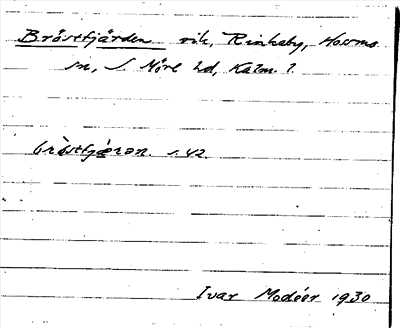 Bröstfjärden vik, Rinkaby, Hossmo
sn, S. Möre hd, Kalm. l.
bròstfjæ̀rən. s. 42.
Ivar Modéer 1930